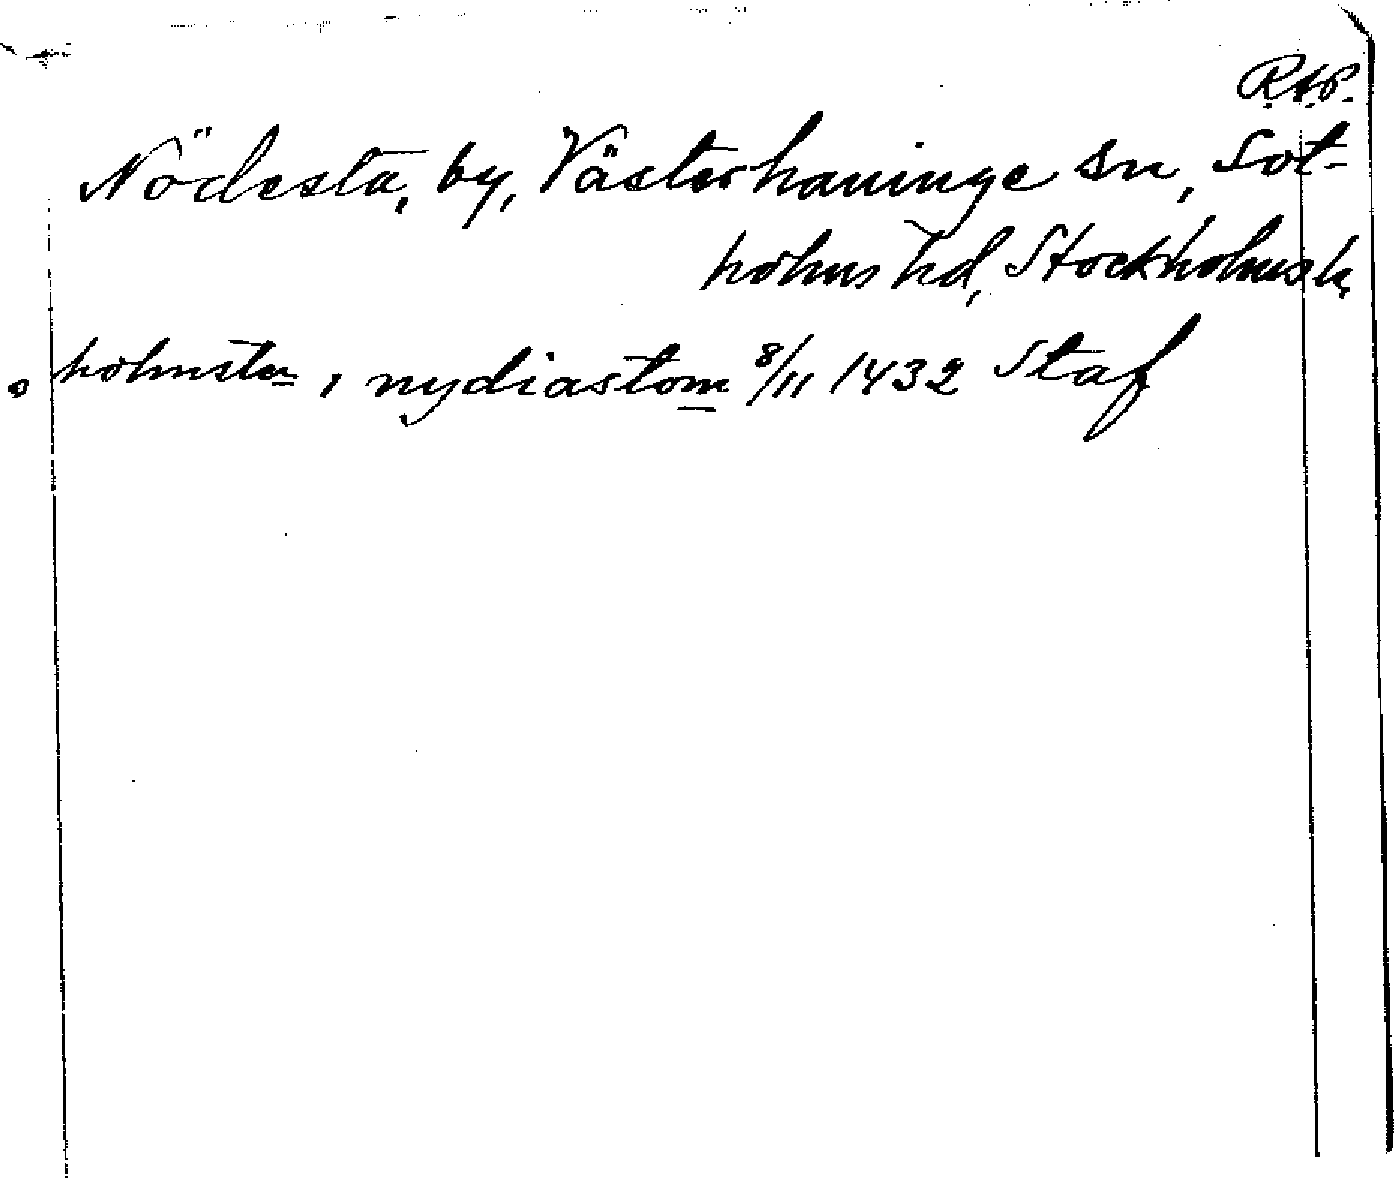 RAP.
Nödesta, by, Västerhaninge sn, Sot-
holms hd, Stockholms l.
holmsta, i nydiastom 8/11 1432 Staf